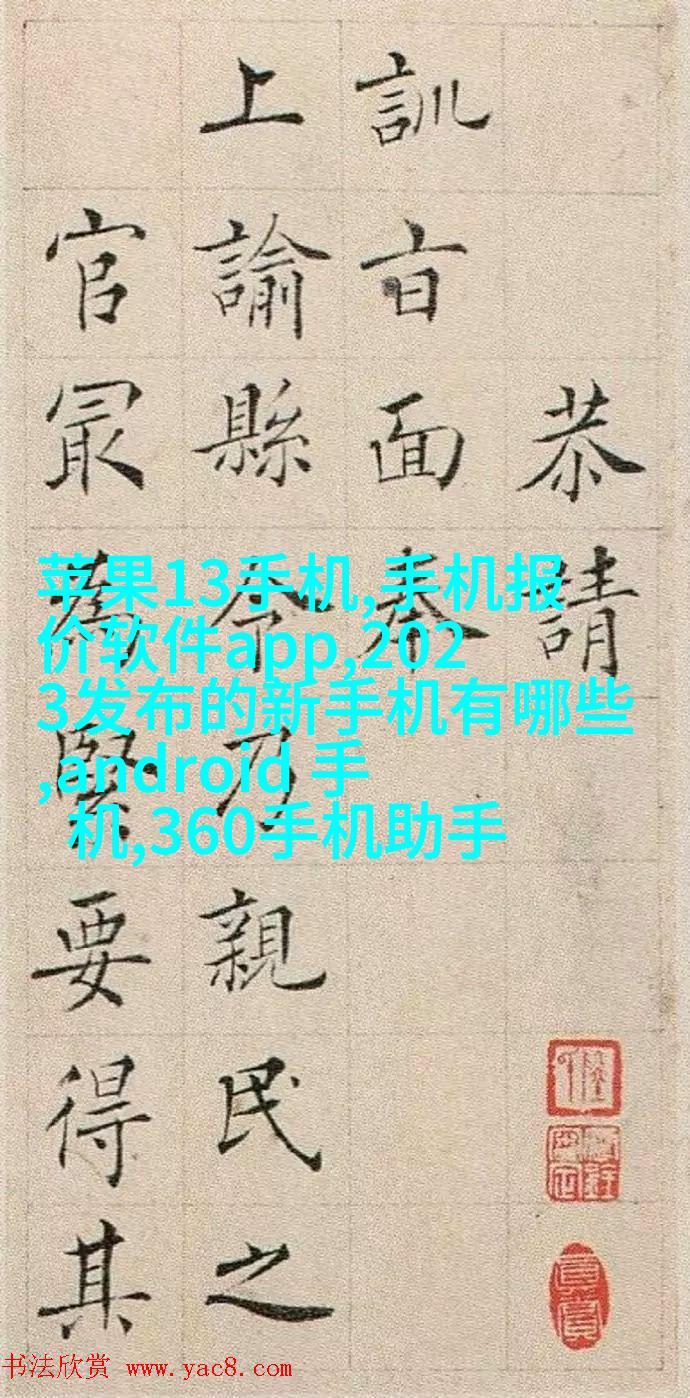 恭請
訓旨面奉
上諭縣令乃親民之
官最為緊要得其
苹果13手机,手机报
价软件app,202
3发布的新手机有哪些
,android 手
机,360手机助手
书法欣赏 www.yac8.com